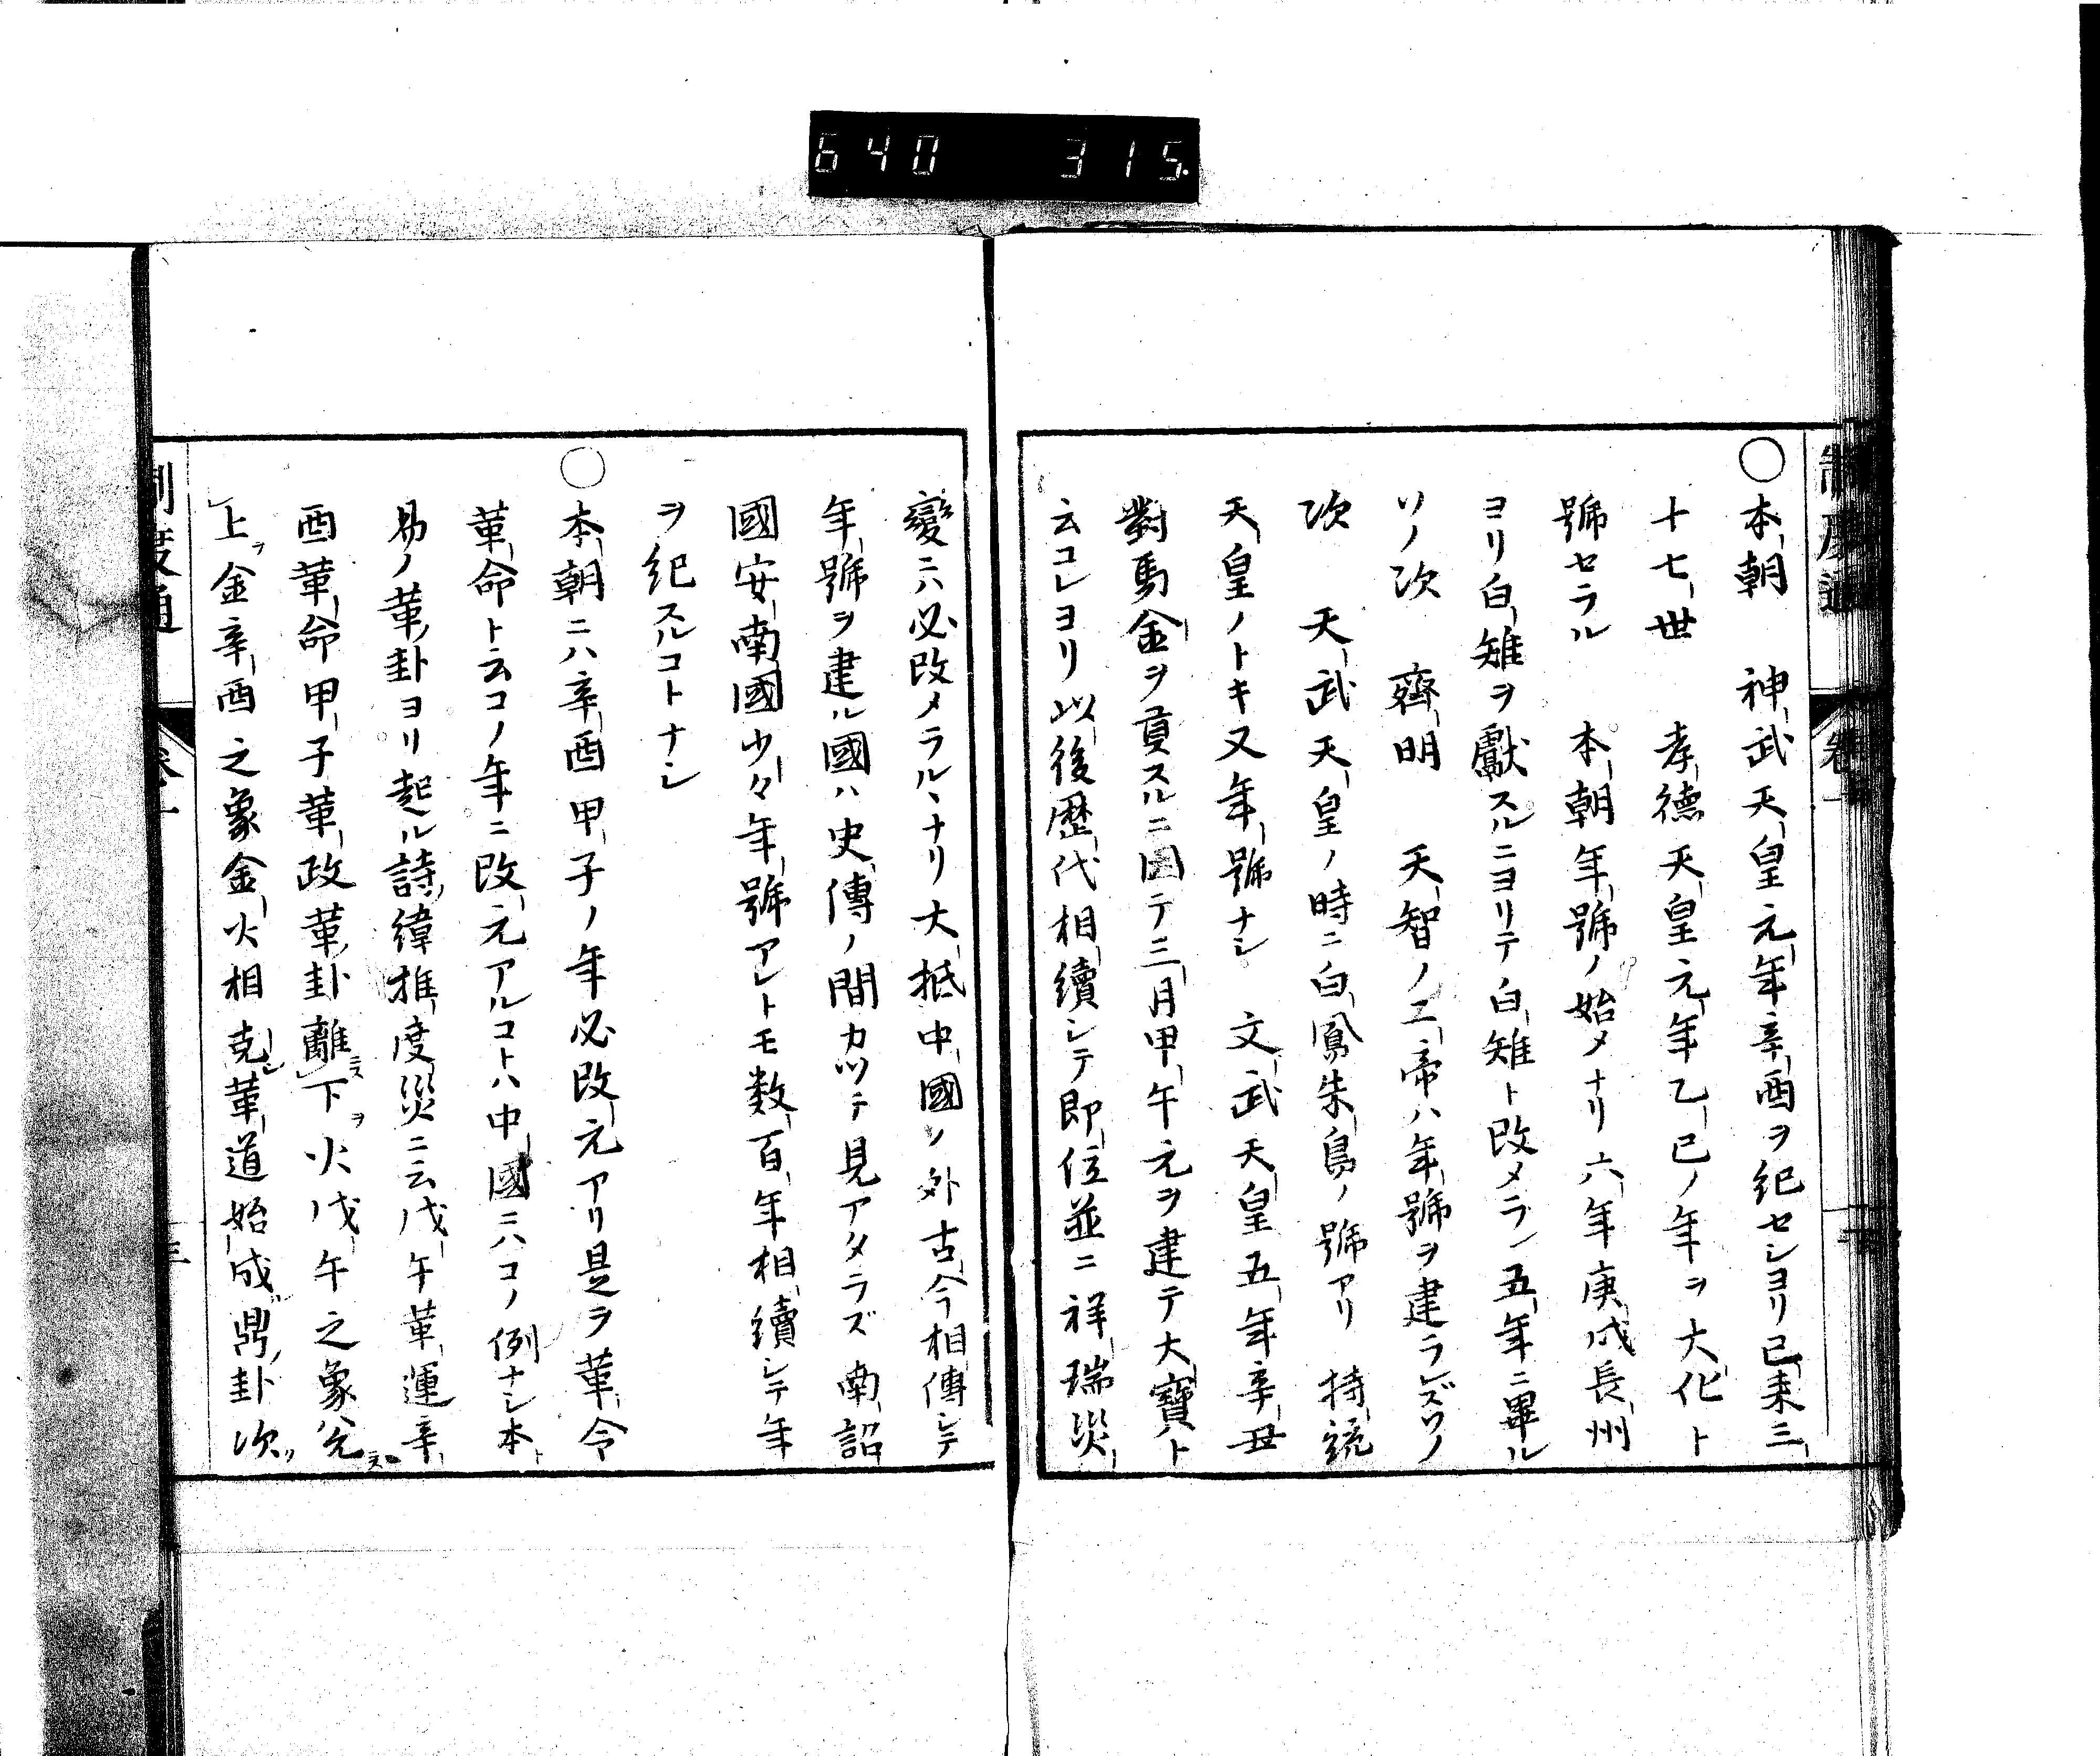 640 315.
制度通 卷一
〇本朝 神武天皇元年辛酉ヲ紀セシヨリ已来三
十七世 孝德天皇元年乙巳ノ年ヲ大化ト
號セラル 本朝年號ノ始メナリ六年庚戌長州
ヨリ白雉ヲ獻スルニヨリテ白雉ト改メラレ五年ニ畢ル
ソノ次 齊明 天智ノ二帝ハ年號ヲ建ラレズソノ
次 天武天皇ノ時ニ白鳳朱鳥ノ號アリ 持統
天皇ノトキ又年號ナシ 文武天皇五年辛丑
對馬金ヲ貢スルニ因テ三月甲午元ヲ建テ大寶ト
云コレヨリ以後歷代相續シテ即位並ニ祥瑞災
變ニハ必改メラルヽナリ大抵中國ノ外古今相傳シテ
年號ヲ建ル國ハ史傳ノ間カツテ見アタラズ南詔
國安南國少々年號アレトモ数百年相續シテ年
ヲ紀スルコトナシ
〇本朝ニハ辛酉甲子ノ年必改元アリ是ヲ革令
革命ト云コノ年ニ改元アルコトハ中國ニハコノ例ナシ本
易ノ革卦ヨリ起ル詩緯推度災ニ云戊午革運辛
酉革命甲子革政革卦離ニス下ヲ火戊午之象兌ニス
上ヲ金辛酉之象金火相克シ革道始成鼎卦次ツ
制度通 卷一 三